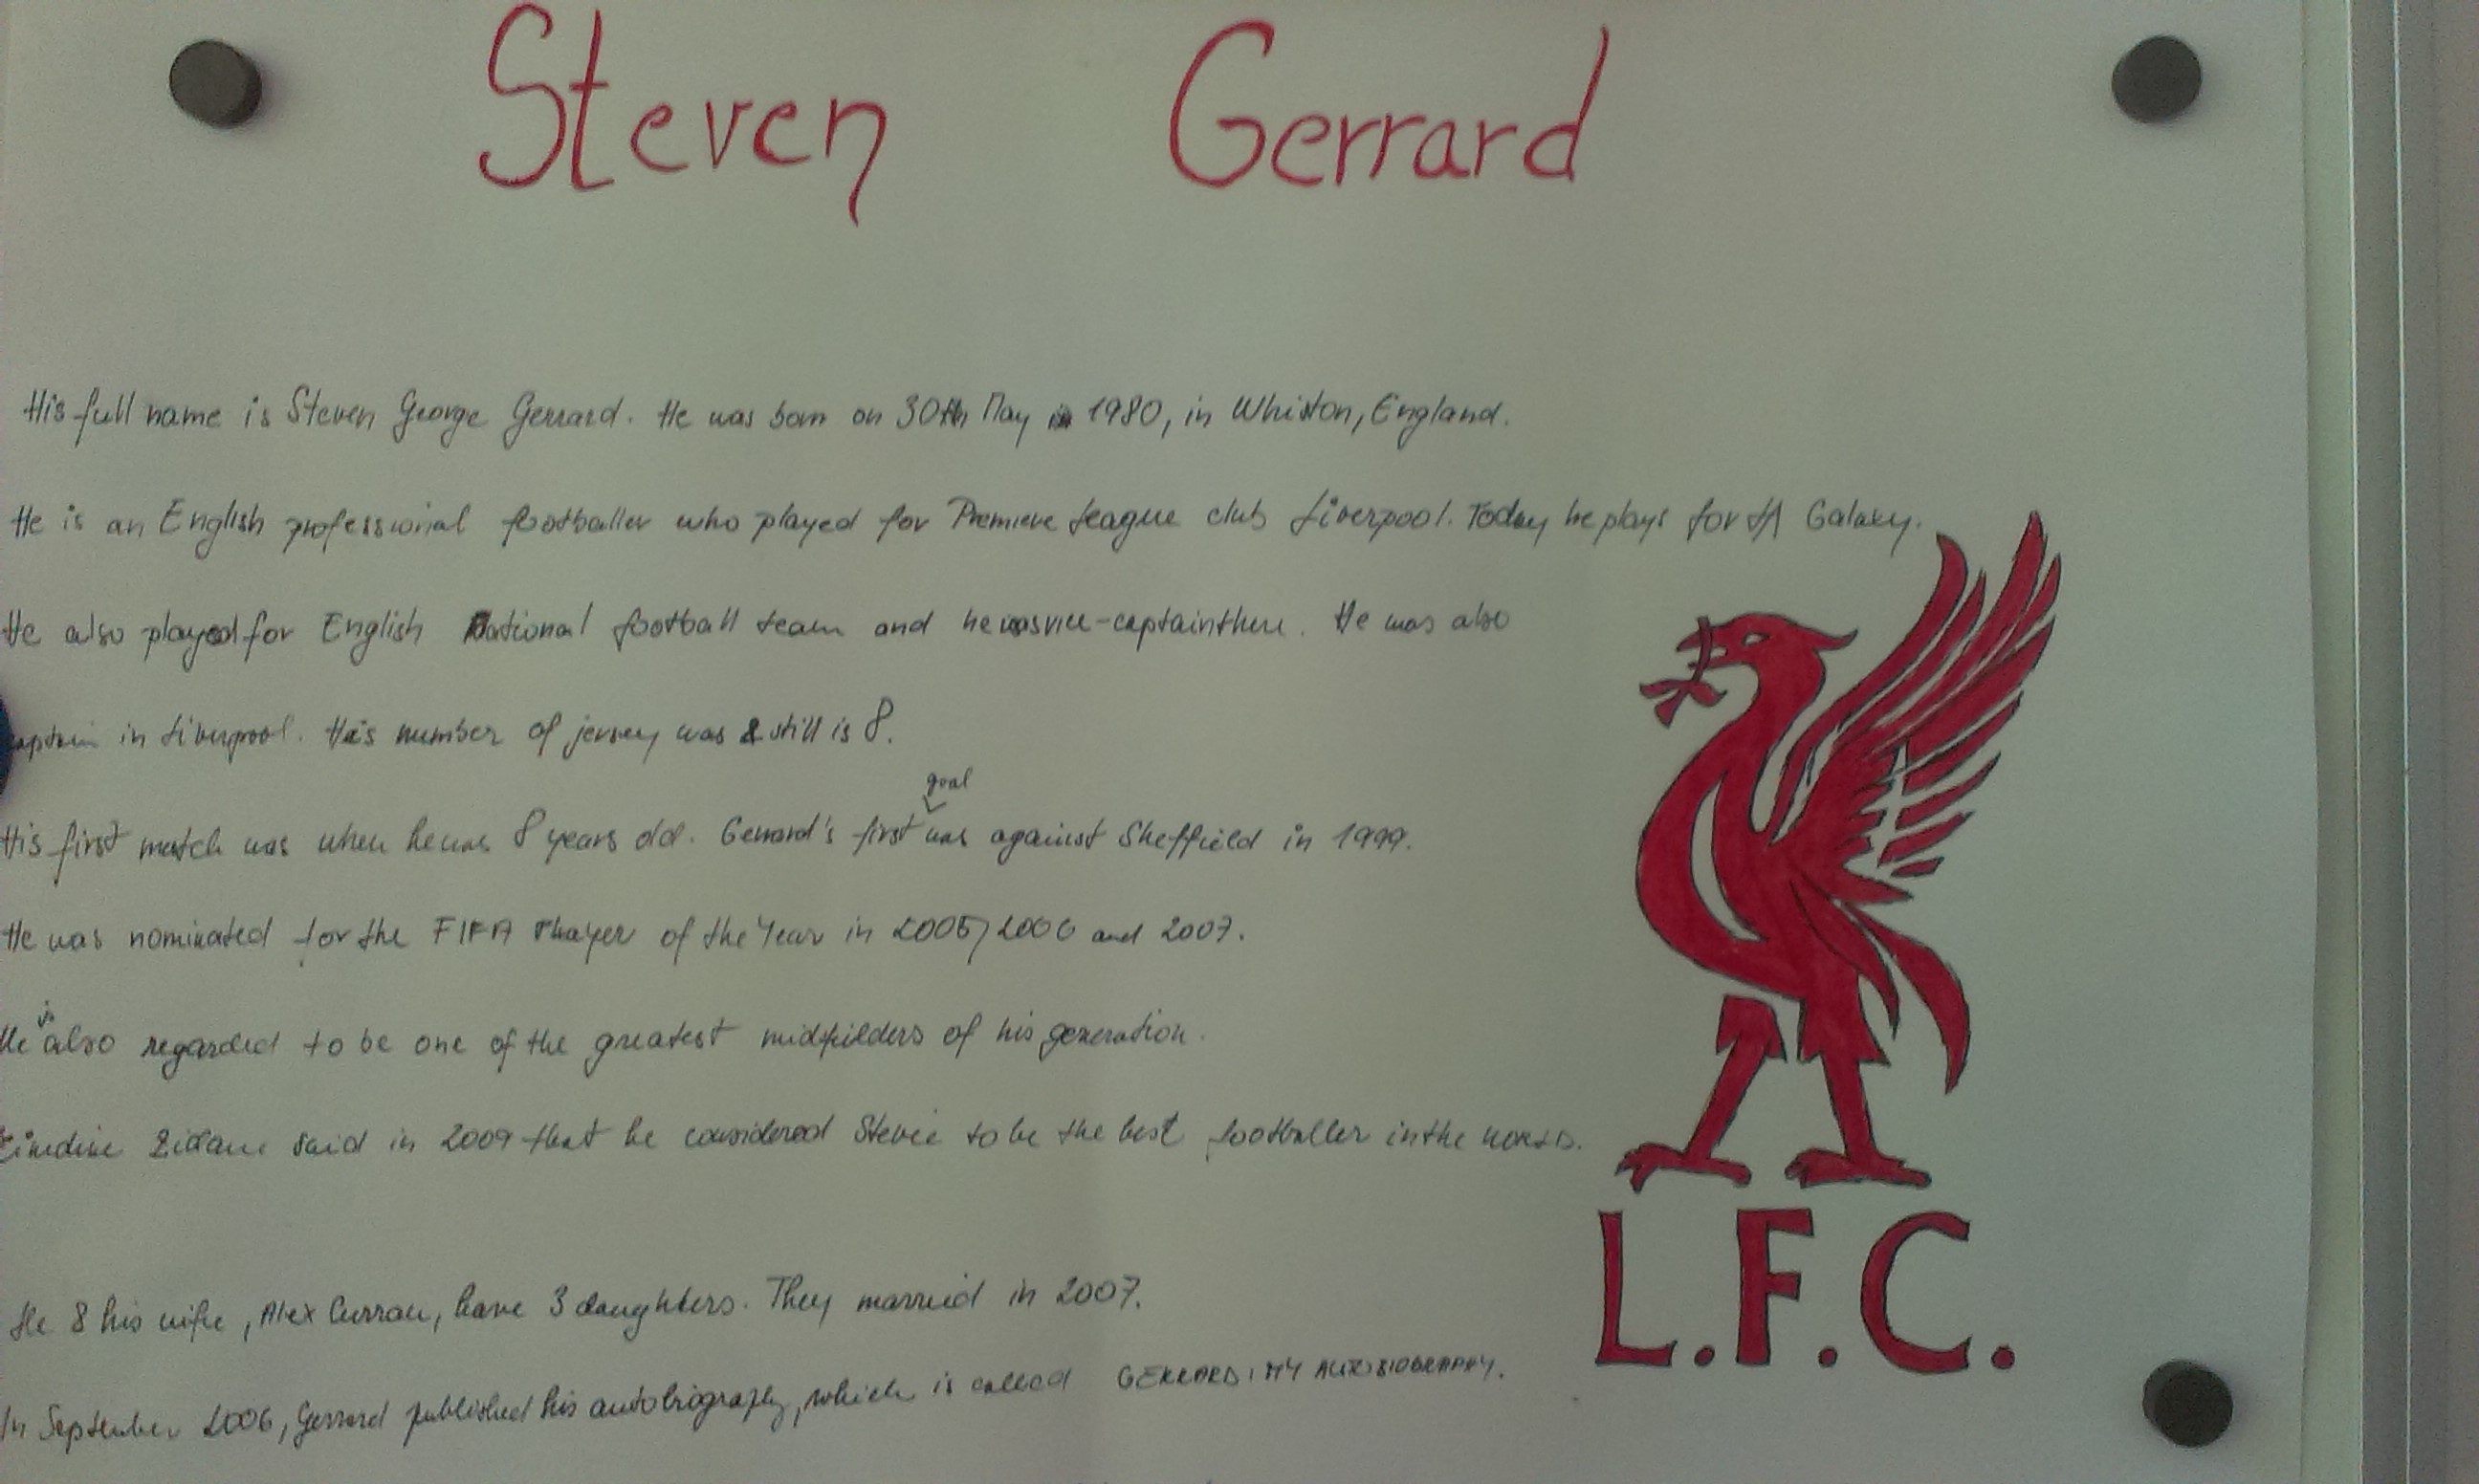 Steven Gerrard
His full name is Steven George Gerrard. He was born on 30th May in 1980, in Whiston, England.
He is an English professional footballer who played for Premiere League club Liverpool. Today he plays for LA Galaxy.
He also played for English national football team and he was vice-captain there. He was also
captain in Liverpool. His number of jersey was & still is 8.
goal
His first match was when he was 8 years old. Gerrard's first was against Sheffield in 1999.
He was nominated for the FIFA Player of the Year in 2005, 2006 and 2007.
is
He also regarded to be one of the greatest midfielders of his generation.
Zinedine Zidane said in 2009 that he considered Stevie to be the best footballer in the WORLD.
L.F.C.
He & his wife, Alex Curran, have 3 daughters. They married in 2007.
In September 2006, Gerrard published his autobiography, which is called GERRARD: MY AUTOBIOGRAPHY.